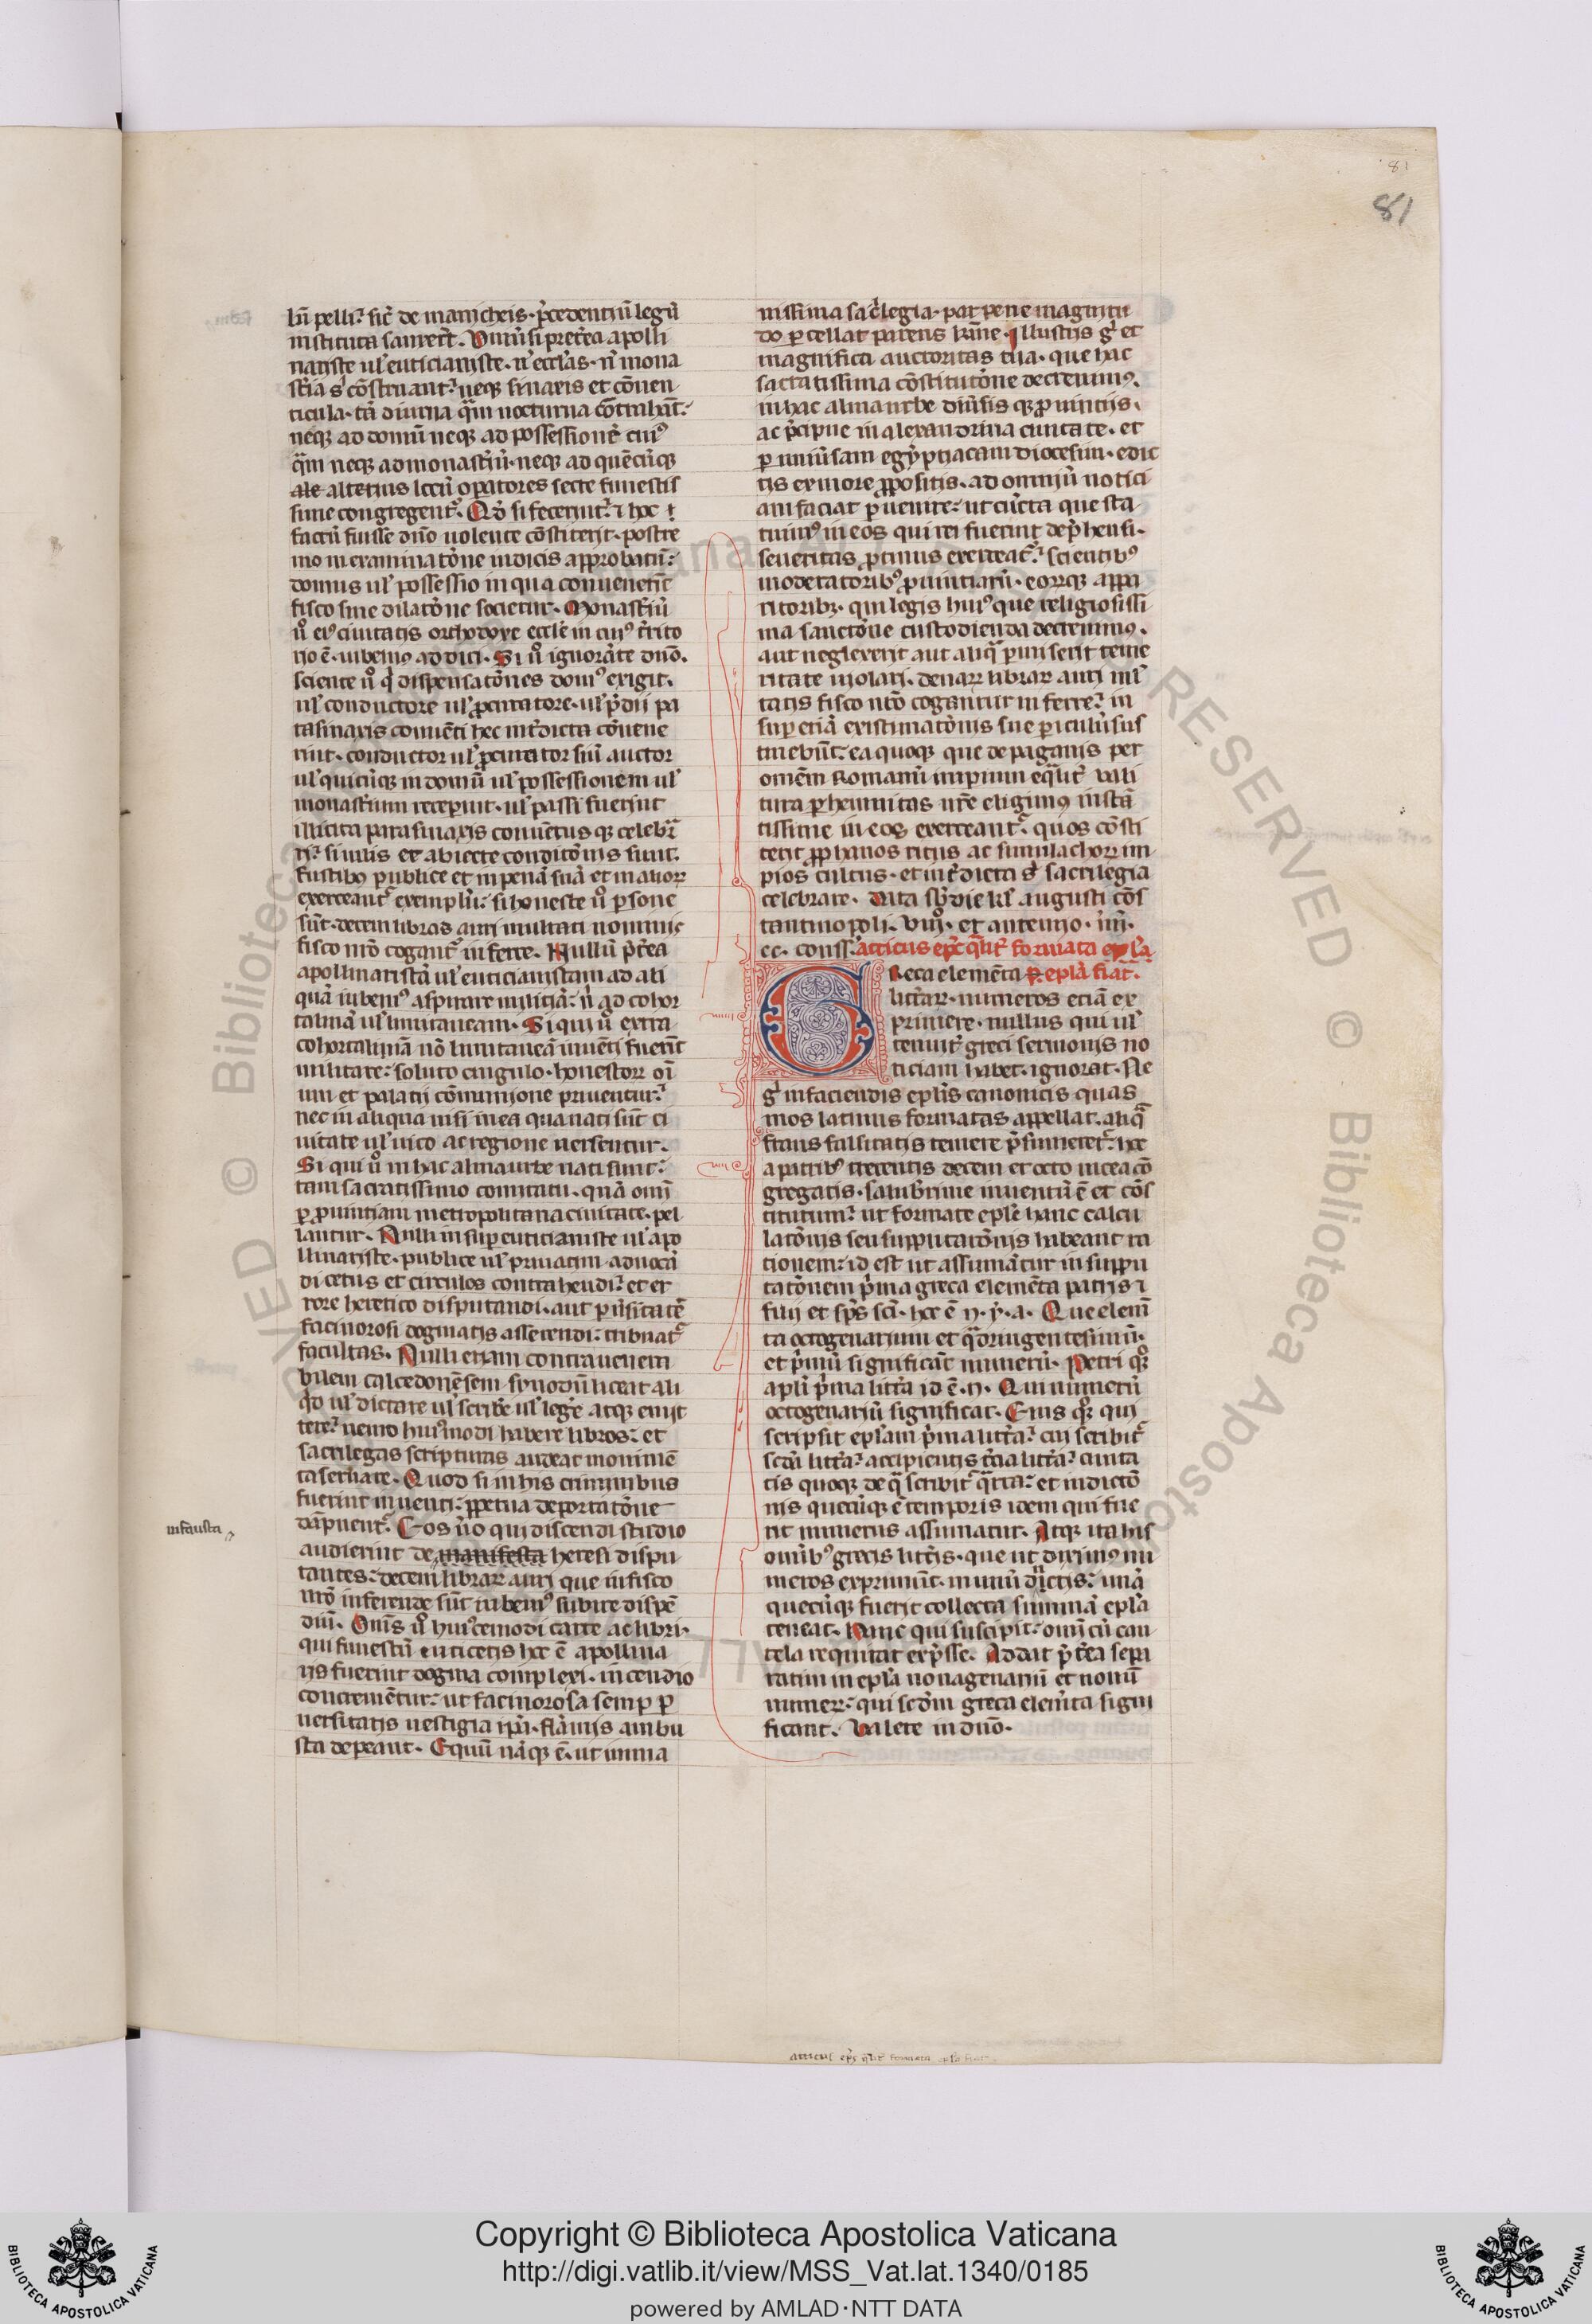 81
81
lũ pelli᷑ sic̃ de manicheis. p̃cedentiũ legũ
instituta sanxer̃t. Vniũsi pret̃ea apolli
nariste ul̃ euticianiste. ñ ecc̃las. ñ mona
st̃ia s̃ cõstruant᷑ neq; sinaxis et cõuen
ticula. tã diurna q̃m nocturna cõtrahãt.
neq; ad domũ neq; ad possessionẽ cui᷒
q̃m neq; ad monast̃iũ. neq; ad quẽcũq;
ale alterius locũ opatores secte funestis
sime congregent᷑. Qð si fecerint᷑ ⁊ hoc
factũ fuisse dño uolente cõstiterit. postre
mo in examinatõne iudicis approbatũ᷑
domus ul̃ possessio in qua conuenerĩt
fisco sine dilatõne societur. Monast̃iũ
ũo ei᷒ ciuitatis orthodoxe eccl̃e in cui᷒ t̃rito
rio ẽ. iubem᷒ addici. Si ũo ignorãte dño.
sciente ũo q̃ dispensatõnes dom᷒ exigit.
ul̃ conductore ul̃ p̃curatore. ul̃ p̃dii pa
rasinaxis conuẽti hec int̃dicta cõuene
rint. conductor ul̃ p̃curator siũ auctor
ul̃ quicũq; in domũ ul̃ possessionem ul̃
monast̃ium receperint. ul̃ passi fuerint
illicita parasinaxis conuẽtus q; celebr̃a
ri᷑ si uilis et abiecte conditõnis sunt.
fustibus publice et in penã suã et in alioꝝ
exerceant᷑ exemplũ᷑ si honeste ũo psone
sũt. decem libras auri multati nominis
fisco nr̃o cogant᷑ inferre. Nullũ p̃t̃ea
apollinaristã ul̃ euticianistam ad ali
quã iubem᷒ aspirare militiã᷑ ñ ad cohor
talinã ul̃ limitaneam. Si qui ũo extra
cohortalinã nõ limitaneã inuẽti fuerĩt
militare᷑ soluto cingulo. honestoꝝ oĩ
um et palatii cõmunione priuentur᷑
nec in aliqua nisi in ea qua nati sũt ci
uitate ul̃ uico ac regione uersentur.
Si qui ũo in hac alma urbe nati sunt᷑
tam sacratissimo comitatu. quã omĩ
p prouintiam metropolitana ciuitate. pel
lantur. Nulli insup euticianiste ul̃ apo
llinariste. publice ul̃ priuatim. aduocã
di cetus et circulos contrahendi᷑ et er
rore heretico disputandi. aut puersitatẽ
facinorosi dogmatis asserendi᷑ tribuat᷑
facultas. Nulli etiam contra uenera
bilem calcedonẽsem synodũ liceat ali
q̃d ul̃ dictare ul̃ scribẽ ul̃ legẽ atq; emit
tere᷑ nemo hui᷒modi habere libros᷑ et
sacrilegas scripturas audeat monimẽ
ta seruare. Quod si in his criminibus
fuerint inuenti᷑ ppetua deportatõne
dãpnent᷑. Eos ũo qui discendi studio
audierint de manifesta heresi dispu
infausta
tantes᷑ decem libraꝝ auri que in fisco
nr̃o inferende sũt iubem᷒ subire dispẽ
diũ. Om̃s ũo hui᷒cemodi carte ac libri.
qui funestũ euticetis hoc ẽ apollina
ris fuerint dogma complexi. incendio
concremẽtur᷑ ut facinorosa semp p
uersitatis uestigia ip̃a. flãmis ambu
sta depeant. Equũ nãq; ẽ. ut imma
nissima sac̃legia. par pene magnitu
do pcellat parens kr̃me. Illustris g̃ et
magnifica auctoritas tua. que hac
sacratissima cõstitutõne decreuim᷒.
in hac alma urbe diũsis q; puintiis.
ac p̃cipue in alexandrina ciuitate. et
p uniũsam egyptiacam diocesim. edic
tis ex more ppositis. ad omniũ notici
am faciat puenire᷑ ut cũcta que sta
tuim᷒ in eos qui rei fuerint dep̃hensi.
seueritas protinus exerceat᷑. scientib᷒
moderatorib᷒ puintiarũ. eorũq; appa
ritoribꝫ. qui legis hui᷒ que religiosissi
ma sanctõne custodienda decreuim᷒.
aut neglexerit aut aliq̃ pmiserit teme
ritate uiolari. denaꝝ libraꝝ auri mĩ
tatis fisco nr̃o cogantur inferre᷑ in
sup etiã existimatõnis sue piculũ sus
tinebũt᷑ ea quoq; que de paganis per
omẽm Romanũ impium eq̃lit̃ uali
tura phennitas nr̃e eligim᷒ instã
tissime in eos exerceant᷑. quos cõsti
terit pphanos ritus ac simulachoꝝ im
pios cultus. et int̃dicta s̃ sacrilegia
celebrare. Data sb̃ die kl̃ augusti cõs
tantinopoli. viiio. et autenno. iiii.
cc. conss. atticus ep̃c q̃lit̃ formata ep̃la
Greca elemẽta ꝓ. epl̃a fiat.
litt̃aꝝ. numeros eciã ex
primere. nullus qui ul̃
tenuit̃ greci sermonis no
ticiam habet. ignorat. Ne
g̃ in faciendis epl̃is canonicis quas
mos latinus formatas appellat. aliq̃
fraus falsitatis temere p̃sumeret᷑. hoc
a patrib᷒ trecentis decem et octo nicea cõ
gregatis. salub̃rime inuentũ ẽ et cõs
titutum᷑ ut formate epl̃e hanc calcu
latõnis seu supputatõnis habeant ra
tionem᷑ id est ut assumãtur in suppu
tatõnem p̃ma greca elemẽta patris ⁊
filii et sp̃s sc̃i. hoc ẽ .π. y. a. Que elem̃
ta octogenarium et q̃dringentesimũ.
et p̃mũ significãt numerũ. Petri q;
apl̃i p̃ma litt̃a id ẽ .π. Qui numerũ
octogenariũ significat. Eius q; qui
scripsit epl̃am p̃ma litt̃a᷑. cui scribit᷑
sc̃da litt̃a᷑ accipientis t̃cia litt̃a᷑ ciuita
tis quoq; de q̃ scribit᷑ q̃rta᷑ et indictõ
nis quecũq; ẽ temporis idem qui fue
rit numerus assumatur. Atq; ita his
omĩb᷒ grecis litt̃is. que ut dixim᷒ nu
meros exprimũt. in unũ ductis᷑ unã
quecũq; fuerit collecta summã epl̃a
teneat. Hanc qui suscipit᷑ omĩ cũ cau
tela requirat exp̃sse. Addat p̃t̃ea sepa
ratim in epl̃a nonagenariũ et nonũ
numeꝝ᷑ qui sc̃dm greca elem̃ta signi
ficant. Valete in dño.
atticus ep̃s q̃lit̃ formata epl̃a fiat
Copyright © Biblioteca Apostolica Vaticana
http://digi.vatlib.it/view/MSS_Vat.lat.1340/0185
powered by AMLAD·NTT DATA
BIBLIOTECA APOSTOLICA VATICANA
BIBLIOTECA APOSTOLICA VATICANA